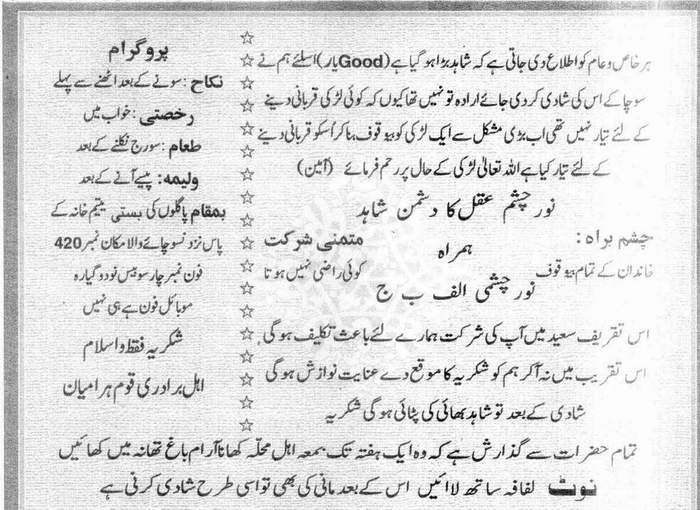 ہر خاص و عام کو اطلاع دی جاتی ہے کہ شاہد بڑا ہو گیا ہے (Good یار) اسلئے ہم نے
سوچا کے اس کی شادی کر دی جائے ارادہ تو نہیں تھا کیوں کہ کوئی لڑکی قربانی دینے
کے لئے تیار نہیں تھی اب بڑی مشکل سے ایک لڑکی کو بیوقوف بنا کر اُسکو قربانی دینے
کے لئے تیار کیا ہے اللہ تعالیٰ لڑکی کے حال پر رحم فرمائے (آمین)
نور چشم عقل کا دشمن شاہد
ہمراہ
نور چشمی الف ب ج
چشم براہ:
خاندان کے تمام بیوقوف
متمنی شرکت
کوئی راضی نہیں ہوتا
اس تقریف سعید میں آپ کی شرکت ہمارے لئے باعث تکلیف ہوگی
اس تقریب میں نہ آکر ہم کو شکریہ کا موقع دے عنایت نوازش ہوگی
شادی کے بعد تو شاہد بھائی کی پٹائی ہوگی شکریہ
پروگرام
نکاح: سونے کے بعد اٹھنے سے پہلے
رخصتی: خواب میں
طعام: سورج نکلنے کے بعد
ولیمہ: پیسے آنے کے بعد
بمقام پاگلوں کی بستی یتیم خانہ کے
پاس نزد نسو چائے والا مکان نمبر 420
فون نمبر چار سو بیس نو دو گیارہ
موبائل فون ہے ہی نہیں
شکریہ فقط و اسلام
اہل برادری قوم ہرامیان
تمام حضرات سے گذارش ہے کہ وہ ایک ہفتہ تک بمعہ اہل محلّہ کھانا آرام باغ تھانہ میں کھائیں
نوٹ لفافہ ساتھ لاائیں اس کے بعد مانی کی بھی تو اسی طرح شادی کرنی ہے